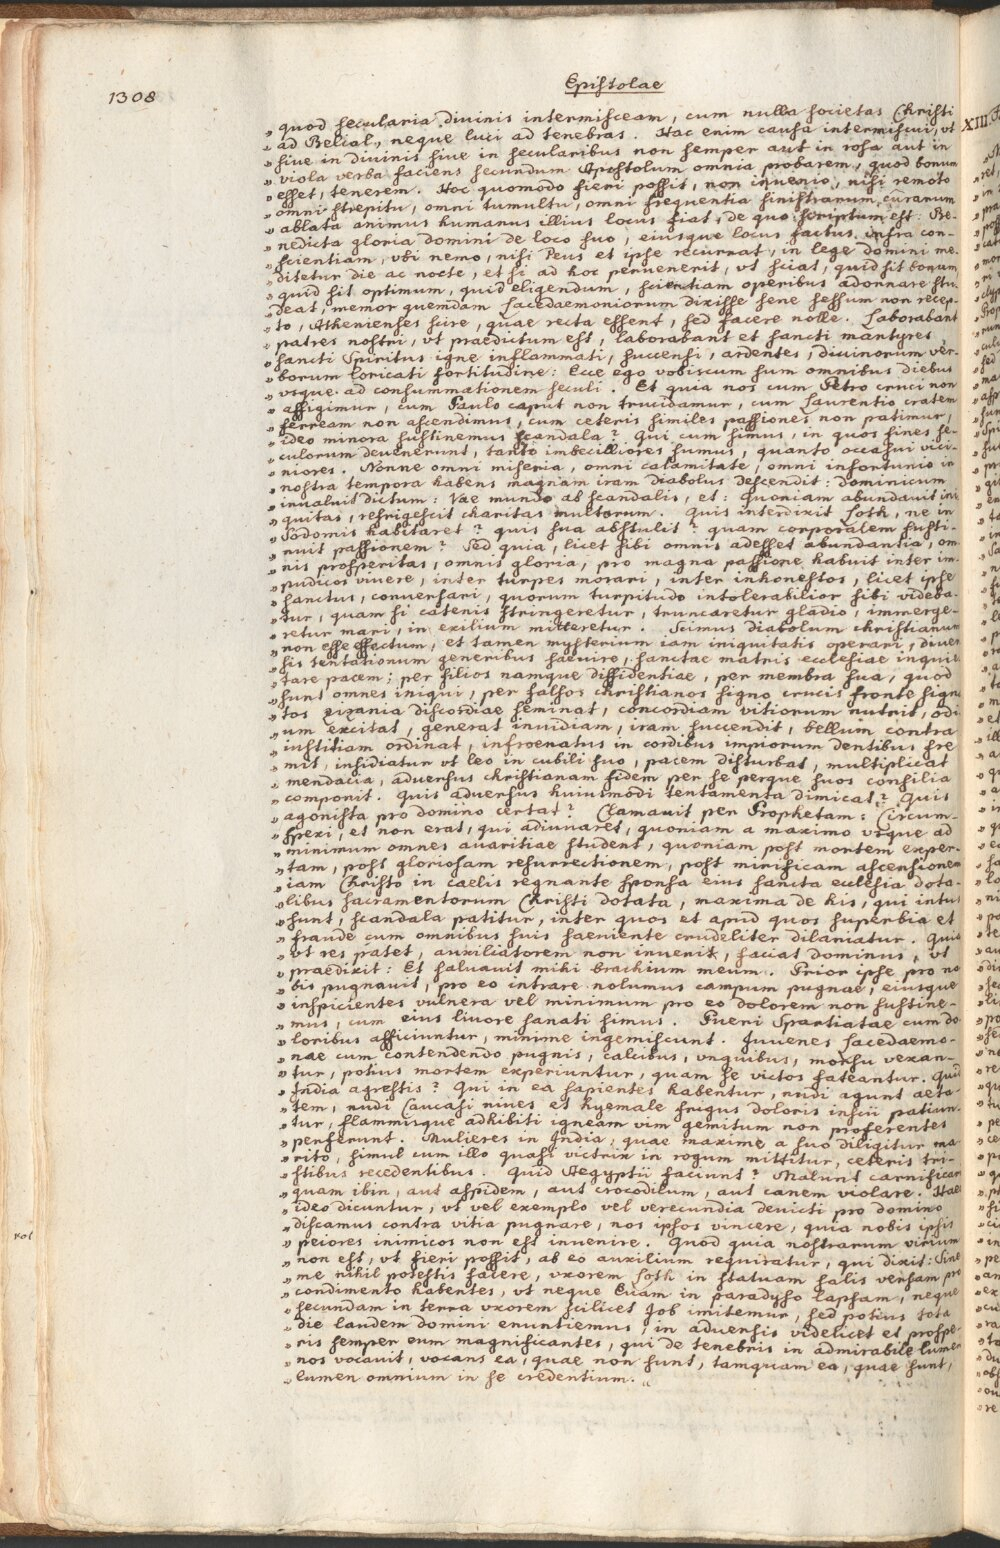 1308
Epistolae
quod secularia divinis intermisceam, cum nulla societas Christi
ad Belial, neque luci ad tenebras. Hac enim causa intermiscui, ut
sive in divinis sive in secularibus non semper aut in rosa aut in
viola verba faciens secundum Apostolum omnia probarem, quod bonum
esset, tenerem. Hoc quomodo fieri possit, non invenio, nisi remoto
omni strepitu, omni tumultu, omni frequentia sinistrarum curarum
ablata animus humanus illius locus fiat, de quo scriptum est: Be-
nedicta gloria domini de loco suo, eiusque locus factus infra con-
scientiam, vbi nemo, nisi Deus et ipse recurrat, in lege domini me-
ditetur die ac nocte, et si ad hoc pervenerit, vt sciat, quid sit bonum,
quid sit optimum, quid eligendum, scientiam operibus adornare stu-
deat, memor quemdam Lacedaemoniorum dixisse sene sessum non recep-
to, Athenienses scire, quae recta essent, sed facere nolle. Laborabant
patres nostri, vt praedictum est, laborabant et sancti martyres
sancti Spiritus igne inflammati, succensi, ardentes, divinorum ver-
borum loricati fortitudine: Ecce ego vobiscum sum omnibus diebus
vsque ad consummationem seculi. Et quia nos cum Petro cruci non
affigimur, cum Paulo caput non trucidamur, cum Laurentio cratem
ferream non ascendimus, cum ceteris similes passiones non patimur,
ideo minora sustinemus scandala? Qui cum simus, in quos fines se-
culorum devenerunt, tanto imbecilliores sumus, quanto occasui vici-
niores. Nonne omni miseria, omni calamitate, omni infortunio in
nostra tempora habens magnam iram diabolus descendit: dominicum
invaluit dictum: Vae mundo ab scandalis, et: Quoniam abundavit ini-
quitas, refrigescit charitas multorum. Quis interdixit Loth, ne in
Sodomis habitaret? quis sua abstulit? quam corporalem susti-
nuit passionem? Sed quia, licet sibi omnis adesset abundantia, om-
nis prosperitas, omnis gloria, pro magna passione habuit inter im-
pudicos vivere, inter turpes morari, inter inhonestos, licet ipse
sanctus, conversari, quorum turpitudo intolerabilior sibi videba-
tur, quam si catenis stringeretur, truncaretur gladio, immerge-
retur mari, in exilium mitteretur. Scimus diabolum christianum
non esse effectum, et tamen mysterium iam iniquitatis operari, diver
sis tentationum generibus saevire, sanctae matris ecclesiae inquie
tare pacem; per filios namque diffidentiae, per membra sua, quod
sunt omnes iniqui, per falsos christianos signo crucis fronte signa
tos zizania discordiae seminat, concordiam vitiorum nutrit, odi
um excitat, generat invidiam, iram succendit, bellum contra
iustitiam ordinat, infroenatus in cordibus impiorum dentibus fre
mit, insidiatur vt leo in cubili suo, pacem disturbat, multiplicat
mendacia, adversus christianam fidem per se perque suos consilia
componit. Quis adversus huiusmodi tentamenta dimicat? Quis
agonista pro domino certat? Clamavit per Prophetam: Circum-
spexi, et non erat, qui adiuvaret, quoniam a maximo vsque ad
minimum omnes avaritiae student, quoniam post mortem exper-
tam, post gloriosam resurrectionem, post mirificam ascensionem
iam Christo in caelis regnante sponsa eius sancta ecclesia dota-
libus sacramentorum Christi dotata, maxima de his, qui intus
sunt, scandala patitur, inter quos et apud quos superbia et
fraude cum omnibus suis saeviente crudeliter dilaniatur. Quis
vt res patet, auxiliatorem non invenit, faciat dominus, vt
praedixit: Et salvavit mihi brachium meum. Prior ipse pro no
bis pugnavit, pro eo intrare nolumus campum pugnae, eiusque
inspicientes vulnera vel minimum pro eo dolorem non sustine-
mus, cum eius livore sanati simus. Pueri Spartiatae cum do
loribus afficiuntur, minime ingemiscunt. Iuvenes Lacedaemo-
nae cum contendendo pugnis, calcibus, vnguibus, morsu vexan-
tur, potius mortem experiuntur, quam se victos fateantur. Quid
India agrestis? Qui in ea sapientes habentur, nudi agunt aeta-
tem, nudi Caucasi nives et hyemale frigus doloris inscii patiun-
tur, flammisque adhibiti igneam vim gemitum non proferentes
perferunt. Mulieres in India, quae maxime a suo diligitur ma
rito, simul cum illo quasi victrix in rogum mittitur, ceteris tri-
stibus recedentibus. Quid Aegyptii faciunt? Malunt carnificam
quam ibin, aut aspidem, aut crocodilum, aut canem violare. Haec
ideo dicuntur, vt vel exemplo vel verecundia devicti pro domino
discamus contra vitia pugnare, nos ipsos vincere, quia nobis ipsis
peiores inimicos non est invenire. Quod quia nostrarum virium
non est, vt fieri possit, ab eo auxilium requiratur, qui dixit: Sine
me nihil potestis facere, vxorem Loth in statuam salis versam pro
condimento habentes, vt neque Evam in paradyso lapsam, neque
secundam in terra vxorem scilicet Job imitemur, sed potius tota
die laudem domini enuntiemus, in adversis videlicet et prospe-
ris semper eum magnificantes, qui de tenebris in admirabile lumen
nos vocavit, vocans ea, quae non sunt, tamquam ea, quae sunt,
lumen omnium in se credentium.
XIII.